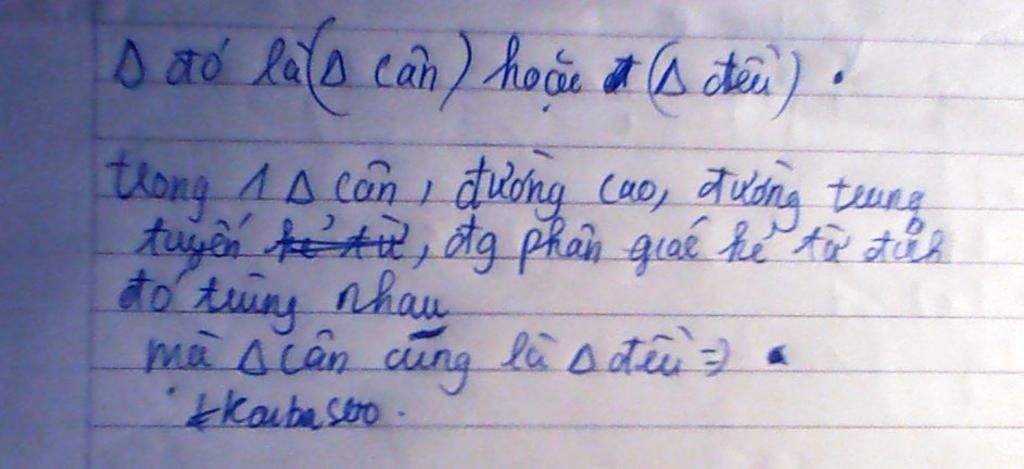 Δ đó là (Δ cân) hoặc (Δ đều).
trong 1 Δ cân, đường cao, đường trung
tuyến kẻ từ, đg phân giác kẻ từ đỉnh
đó trùng nhau
mà Δ cân cũng là Δ đều =>